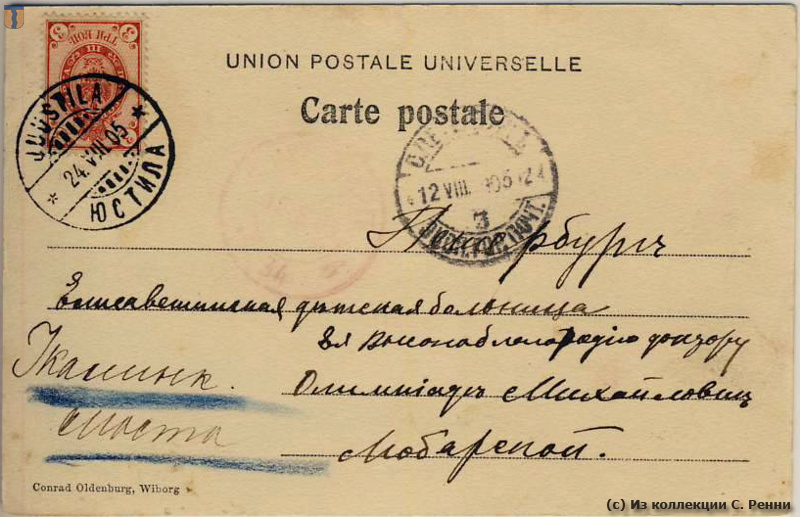 3 ТРИ КОП. 3
UNION POSTALE UNIVERSELLE
Carte postale
JUUSTILA
24.VIII.05
ЮСТИЛА
12 VIII 05 12
3
ГОР. ПОЧТ.
Петербургъ
Елисаветинская дѣтская больница
Ея Высокоблагородію доктору
Олимпіадѣ Михайловнѣ
Любарской.
У Калинк.
моста
Conrad Oldenburg, Wiborg
(с) Из коллекции С. Ренни